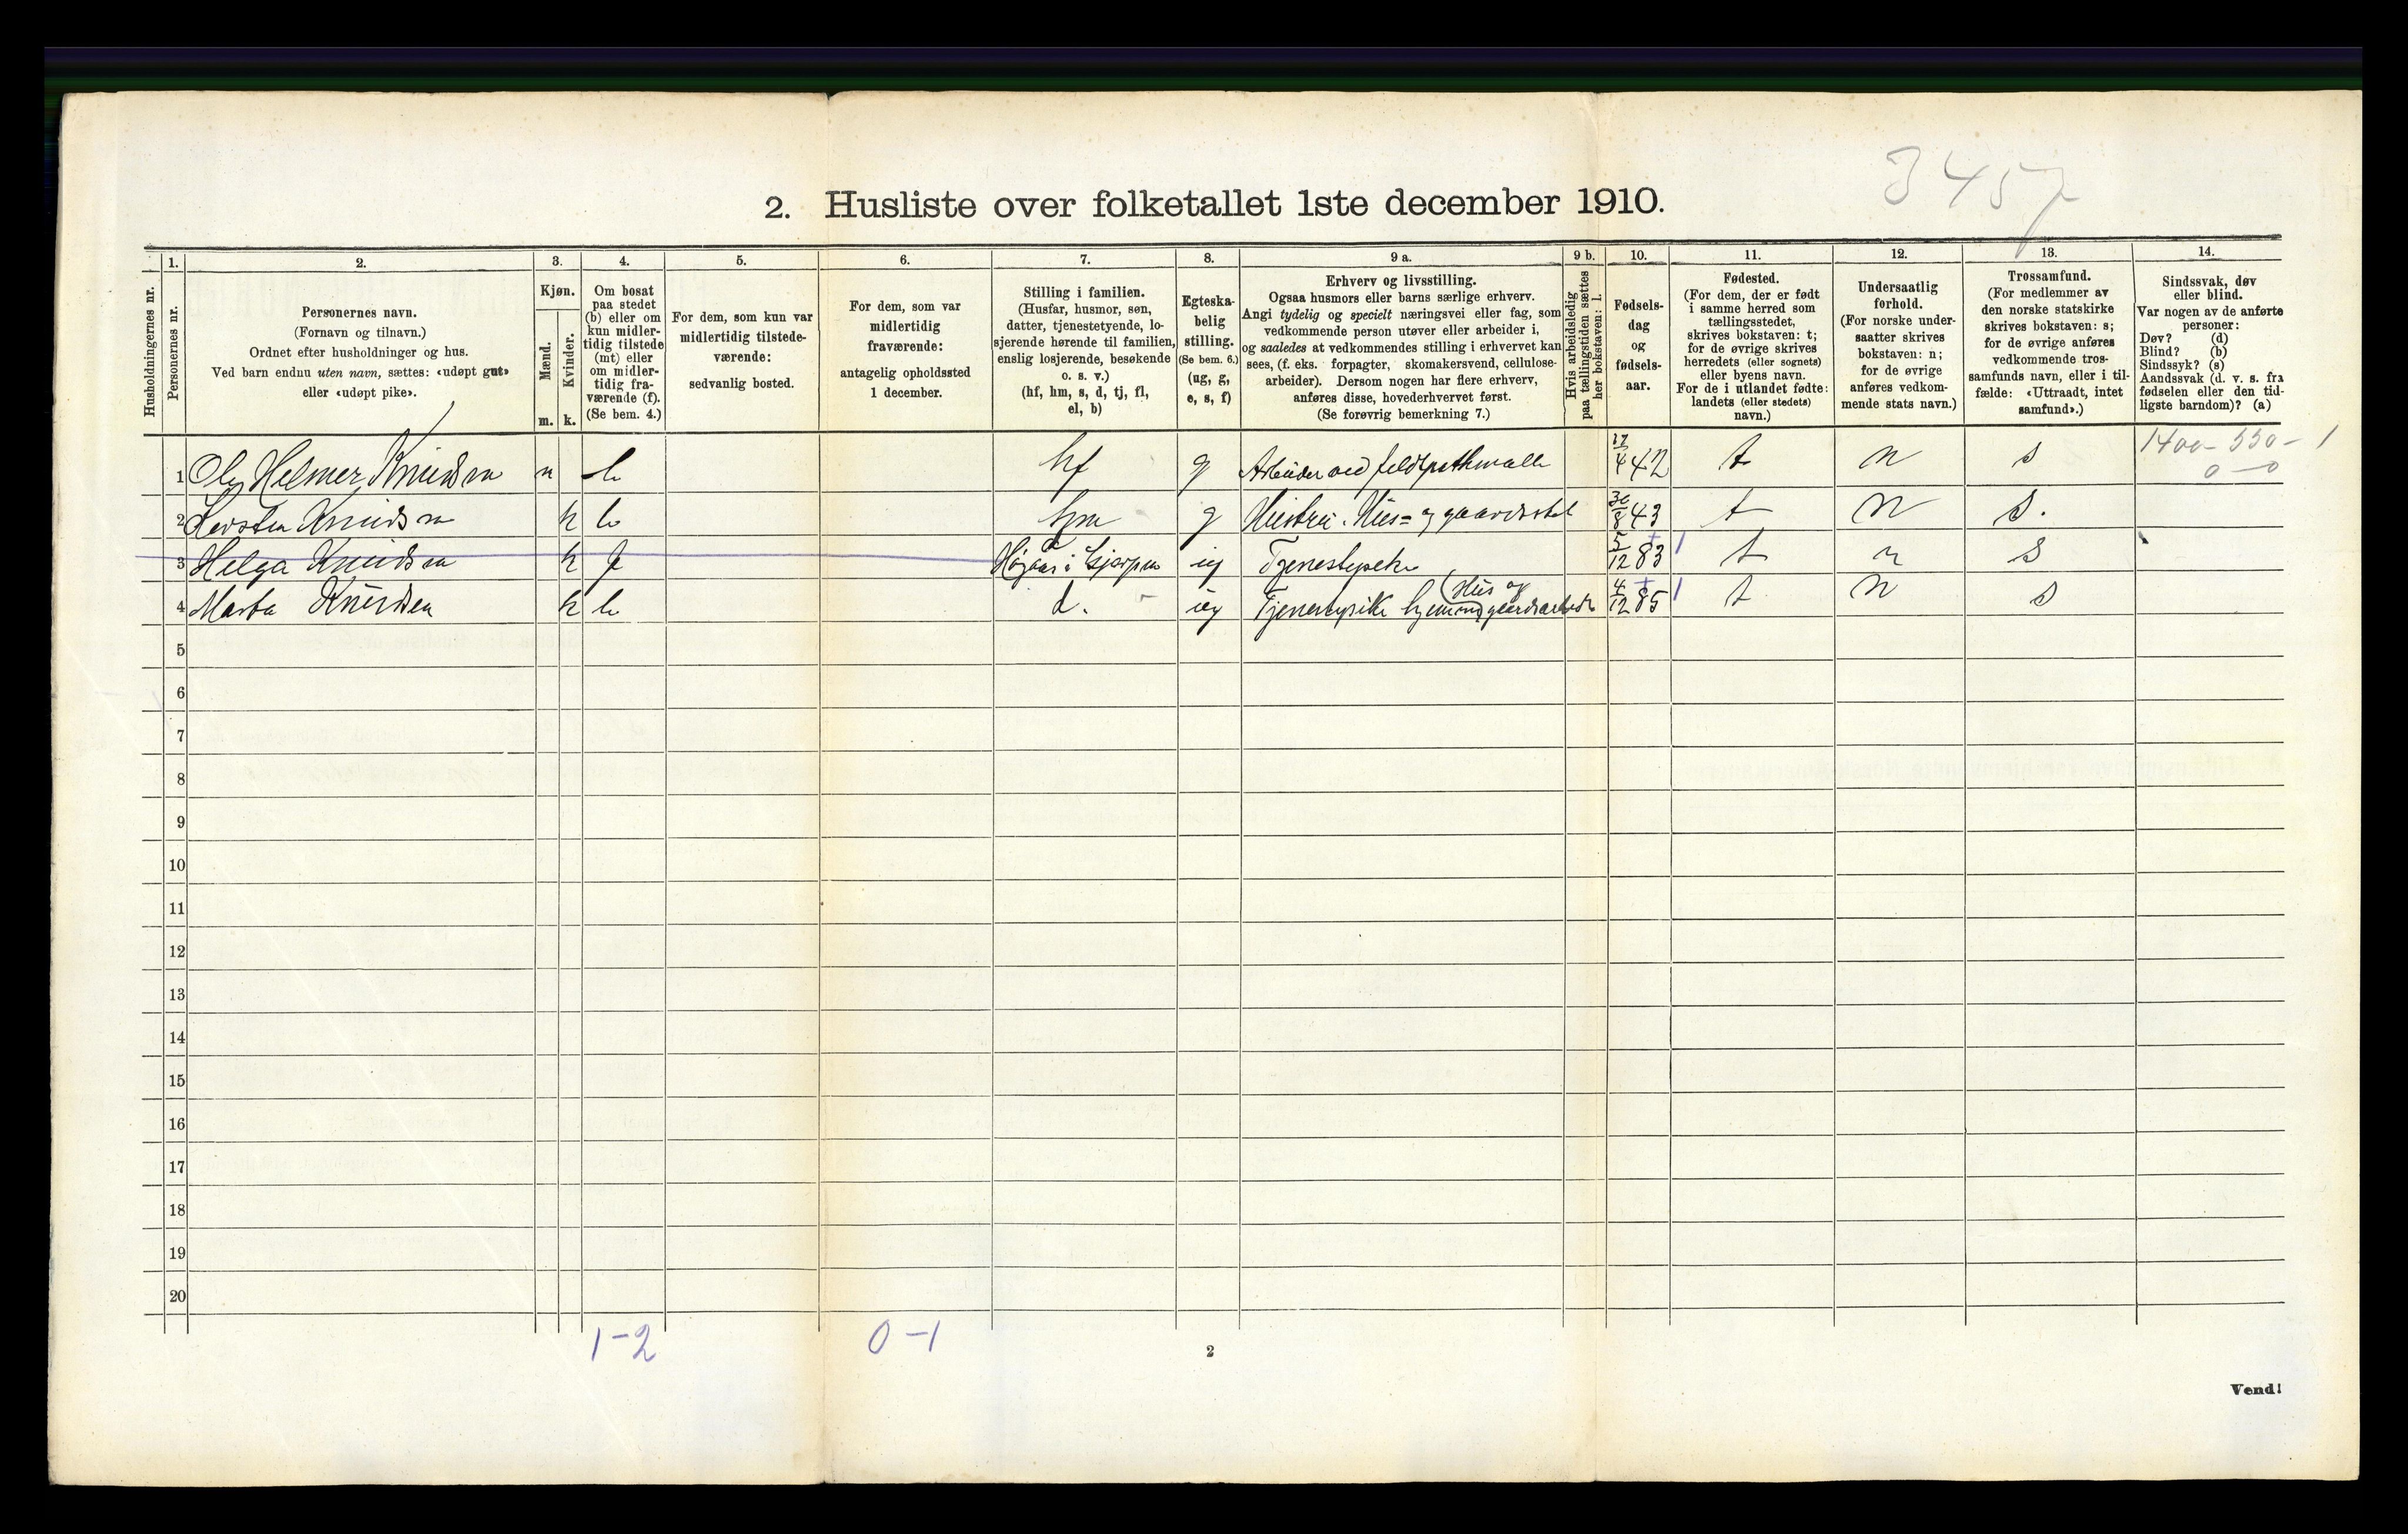 3457
2. Husliste over folketallet 1ste december 1910.
Husholdningernes nr.
1.
Personernes nr.
2.
Personernes navn.
(Fornavn og tilnavn.)
Ordnet efter husholdninger og hus.
Ved barn endnu uten navn, sættes: «udøpt gut»
eller «udøpt pike».
3.
Kjøn.
Mænd.
m.
Kvinder.
k.
4.
Om bosat
paa stedet
(b) eller om
kun midler-
tidig tilstede
(mt) eller
om midler-
tidig fra-
værende (f).
(Se bem. 4.)
5.
For dem, som kun var
midlertidig tilstede-
værende:
sedvanlig bosted.
6.
For dem, som var
midlertidig
fraværende:
antagelig opholdssted
1 december.
7.
Stilling i familien.
(Husfar, husmor, søn,
datter, tjenestetyende, lo-
sjerende hørende til familien,
enslig losjerende, besøkende
o. s. v.)
(hf, hm, s, d, tj, fl,
el, b)
8.
Egteska-
belig
stilling.
(Se bem. 6.)
(ug, g,
e, s, f)
9 a.
Erhverv og livsstilling.
Ogsaa husmors eller barns særlige erhverv.
Angi tydelig og specielt næringsvei eller fag, som
vedkommende person utøver eller arbeider i,
og saaledes at vedkommendes stilling i erhvervet kan
sees, (f. eks. forpagter, skomakersvend, cellulose-
arbeider). Dersom nogen har flere erhverv,
anføres disse, hovederhvervet først.
(Se forøvrig bemerkning 7.)
9 b.
Hvis arbeidsledig
paa tællingstiden sættes
her bokstaven: l.
10.
Fødsels-
dag
og
fødsels-
aar.
11.
Fødested.
(For dem, der er født
i samme herred som
tællingsstedet,
skrives bokstaven: t;
for de øvrige skrives
herredets (eller sognets)
eller byens navn.
For de i utlandet fødte:
landets (eller stedets)
navn.)
12.
Undersaatlig
forhold.
(For norske under-
saatter skrives
bokstaven: n;
for de øvrige
anføres vedkom-
mende stats navn.)
13.
Trossamfund.
(For medlemmer av
den norske statskirke
skrives bokstaven: s;
for de øvrige anføres
vedkommende tros-
samfunds navn, eller i til-
fælde: «Uttraadt, intet
samfund».)
14.
Sindssvak, døv
eller blind.
Var nogen av de anførte
personer:
Døv? (d)
Blind? (b)
Sindssyk? (s)
Aandssvak (d. v. s. fra
fødselen eller den tid-
ligste barndom)? (a)
1400-550-1
0-0
1 Ole Helmer Knudsen m b hf g Arbeider ved feldspathmølle 17/4 42 t n s
2 Knudsen k b hm g Hustru. Hus= og gaardsstel 30/8 43 t n s.
3 Helga Knudsen k f d i Gjerpen ug Tjenestepike 5/12 83 1 t n s
4 Marta Knudsen k b d. - ug Tjenestepike hjemme Hus og gaardsarbeide 4/12 85 1 t n s
5
6
7
8
9
10
11
12
13
14
15
16
17
18
19
20
1-2 0-1
2
Vend!